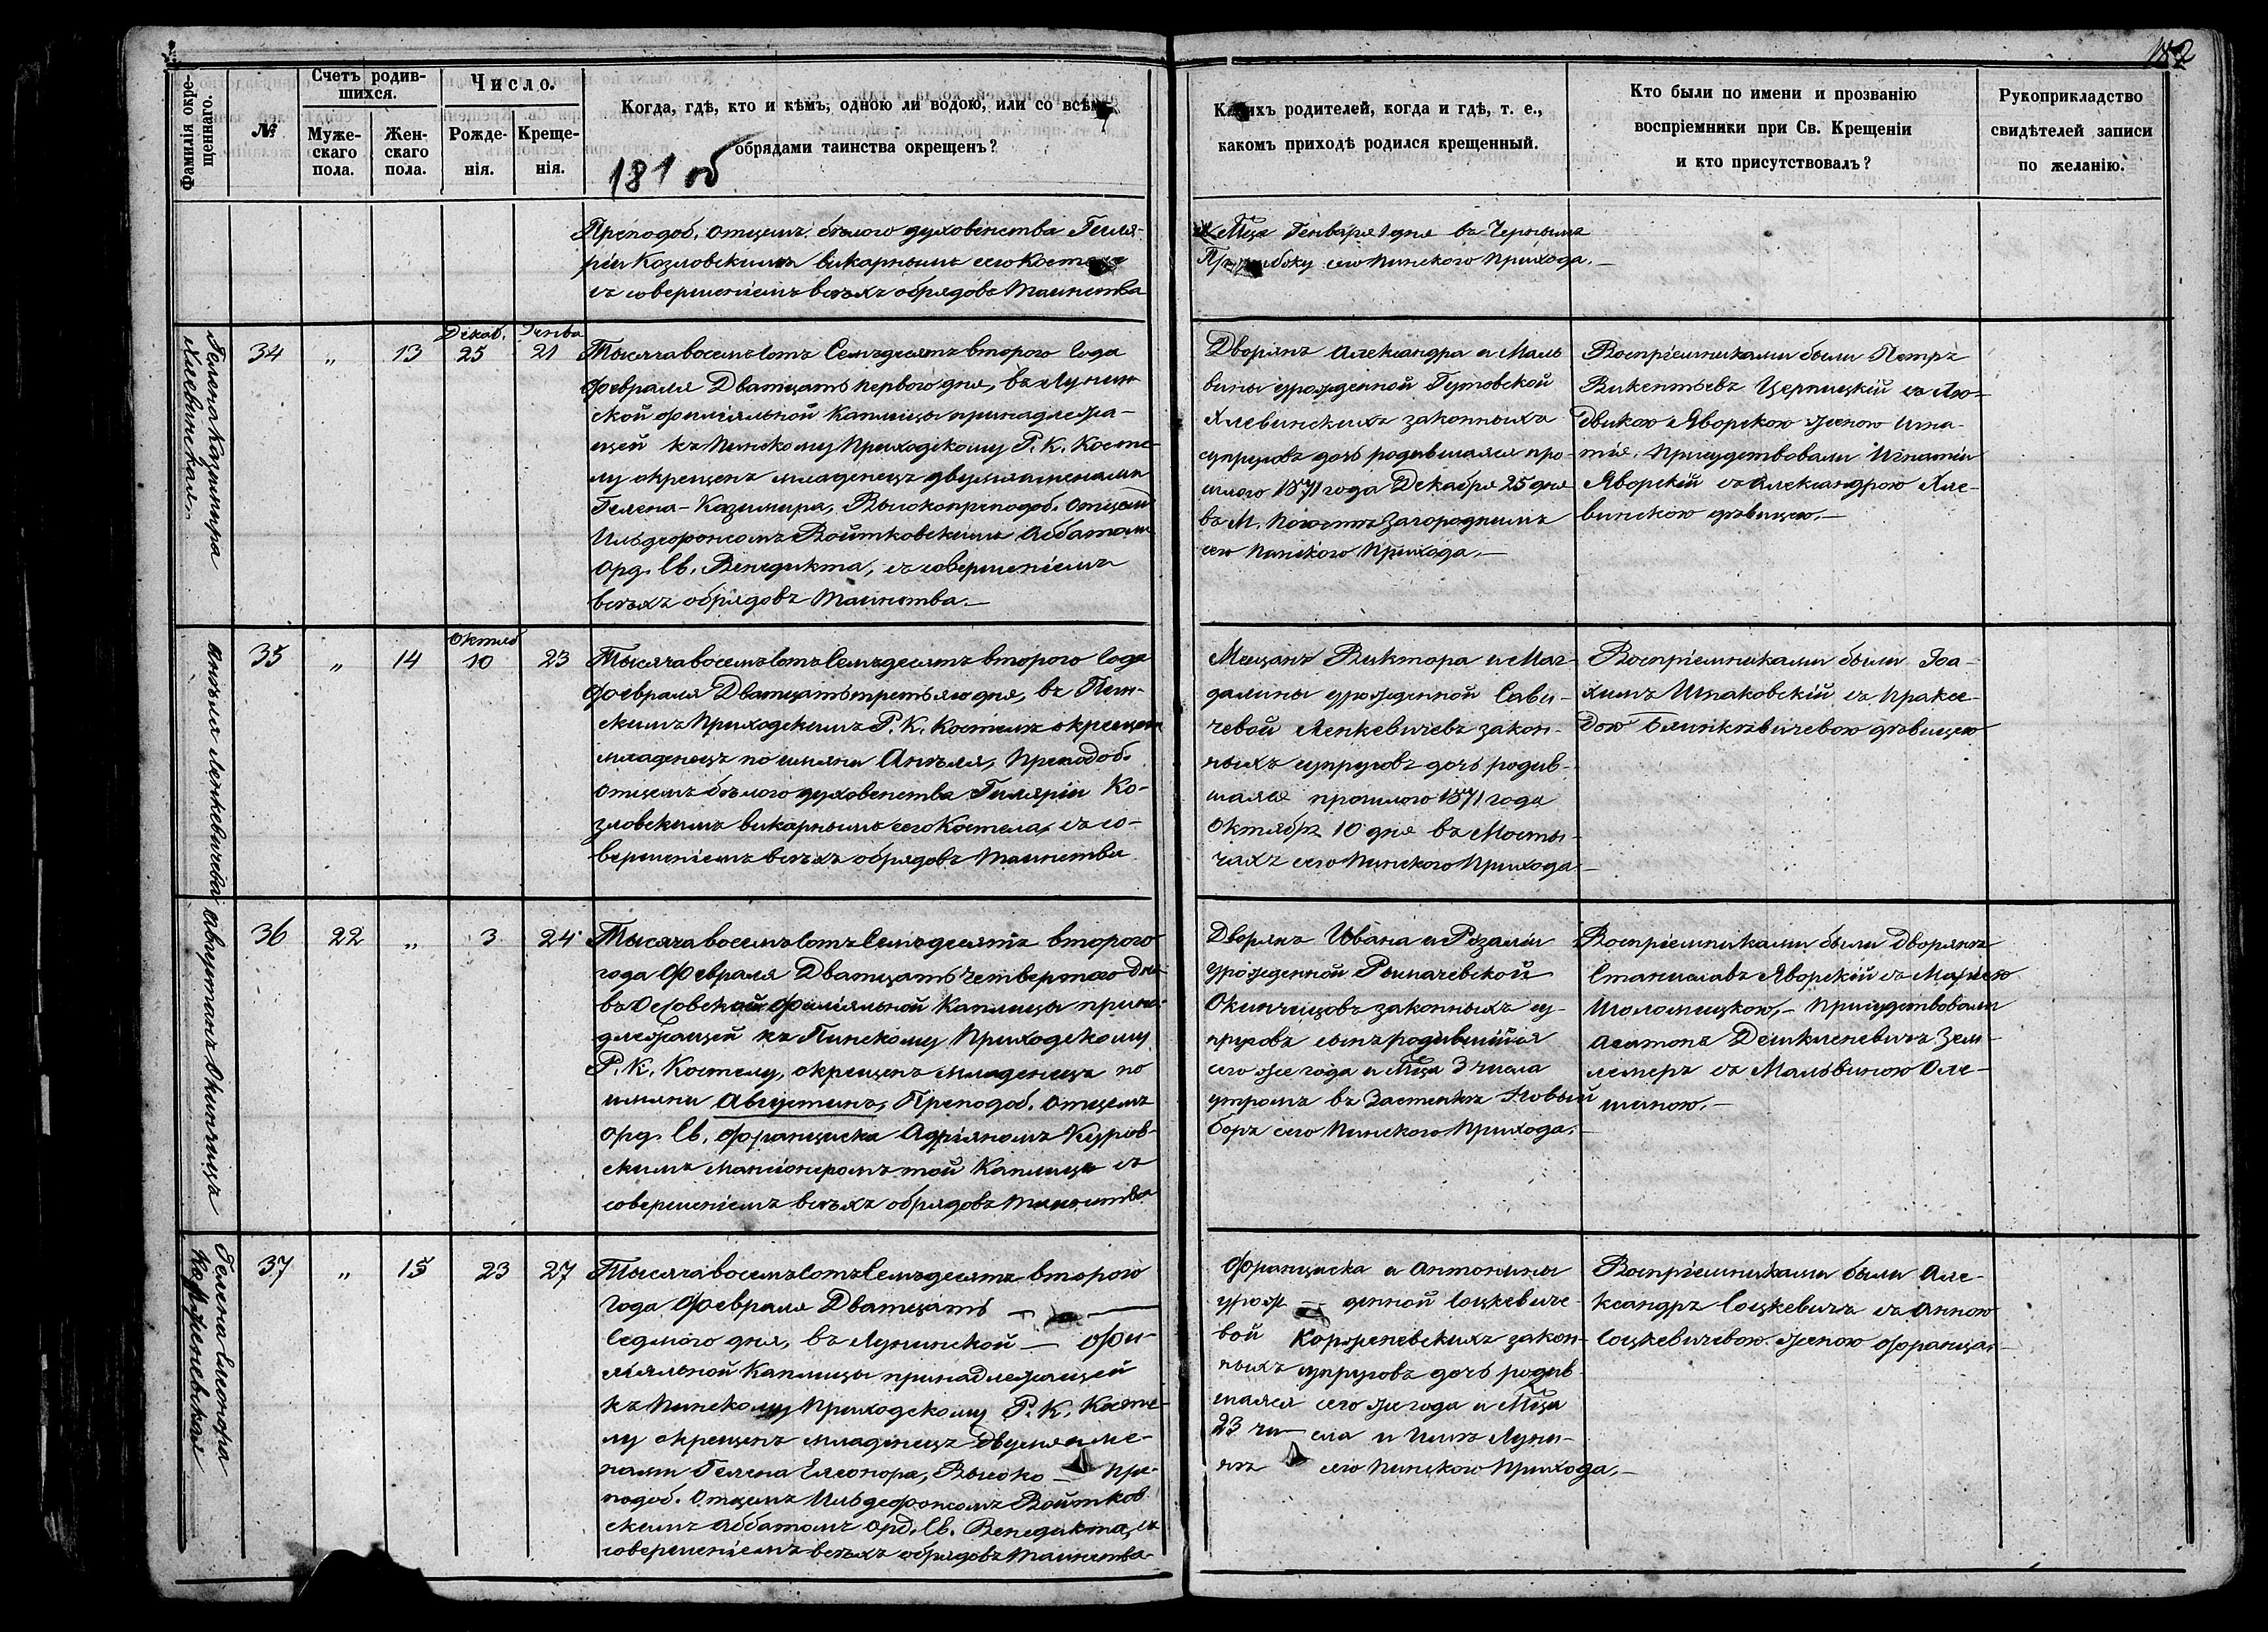 182
Фамилія окре-
щеннаго.
№
Счетъ родив-
шихся.
Муже-
скаго
пола.
Жен-
скаго
пола.
Число.
Рожде-
нія.
Креще-
нія.
Когда, гдѣ, кто и кѣмъ, одною ли водою, или со всѣми
обрядами таинства окрещенъ?
181 об
Какихъ родителей, когда и гдѣ, т. е.,
какомъ приходѣ родился крещенный.
Кто были по имени и прозванію
воспріемники при Св. Крещеніи
и кто присутствовалъ?
Рукоприкладство
свидѣтелей записи
по желанію.
Преподоб. отцемъ бѣлого духовенства Гиля-
ріи Козловскимъ викарнымъ сего Костела
съ совершеніемъ всѣхъ обрядовъ таинства
Мца Генваря 1 дня въ Черныимъ
сего Пинского Прихода.—
Гелена Казимира
Хлевинская
34
„
13
Декаб.
25
Генва
21
Тысяча восемъ сотъ Семъдесятъ второго Года
Февраля Дватцать первого дня, въ Лунин
ской филіяльной Каплицы принадлежа-
щей къ Пинскому Приходскому Р. К. Косте-
лу окрещенъ младенецъ двумя именами
Гелена-Казимира, Высокопреподоб. Отцемъ
Ильдефонсомъ Войтковскимъ Аббатомъ
Орд. Св. Венедикта, съ совершеніемъ
всѣхъ обрядовъ Таинства.—
Дворянъ Александра и Маль
вины урожденной Гутовской
Хлевинскихъ законныхъ
супруговъ дочь родившаяся про-
шлого 1871 года Декабря 25 дня
въ М. Погостѣ Загороднымъ
сего Пинского Прихода.—
Воспріемниками были Петръ
Викентьевъ Церницкій съ Лю-
двикою Яворскою женою Игна-
тія. Присудствовали Игнатій
Яворскій съ Александрою Хле-
винскою дѣвицею.—
Анѣля Ленкевичева
35
„
14
Октяб
10
23
Тысяча восемъ сотъ Семъдесятъ второго Года
Февраля Дватцать третьяго дня, въ Пин-
скимъ Приходскимъ Р. К. Костелѣ окрещенъ
младенецъ по имяни Анѣля, Преподоб.
Отцемъ бѣлого духовенства Гиляріи Ко-
зловскимъ викарнымъ сего Костела, съ со-
вершеніемъ всѣхъ обрядовъ таинства
Мещанъ Виктора и Маг-
далины урожденной Сави-
чевой Ленкевичевъ закон-
ныхъ супруговъ дочь родив-
шаяся прошлого 1871 года
Октября 10 дня въ Мосты-
чахъ сего Пинского Прихода.—
Воспріемниками были Іоа-
химъ Шпаковскій съ Праксе-
дою дѣвицею
Августинъ Окинчицъ
36
22
„
3
24
Тысяча восемъ сотъ Семъдесятъ второго
года Февраля Дватцать четвертого дня
въ Осовской филіяльной Каплицы прина-
длежащей къ Пинскому Приходскому
Р. К. Костелу, окрещенъ младенецъ по
имяни Августинъ, Преподоб. Отцемъ
Орд. Св. Францыска Адріяномъ Куров-
скимъ мансіонеромъ той Каплицы съ
совершеніемъ всѣхъ обрядовъ таинства
Дворянъ Ивана и Розаліи
урожденной Рымачевской
Окинчицовъ законныхъ су-
пруговъ сынъ родившійся
сего же года и Мца 3 числа
утромъ въ Застенкѣ Новый
боръ сего Пинского Прихода.—
Воспріемниками были Дворянъ
Станиславъ Яворскій съ Маріею
Шоломицкою,— Присудствовали
Антонъ Зем-
лемеръ съ Мальвиною Оле-
шаною.—
Гелена Елеонора
Корженевская
37
„
15
23
27
Тысяча восемъ сотъ Семъдесятъ второго
Года Февраля Дватцать —
Седмого дня, въ Лунинской — фи-
ліяльной Каплицы принадлежащей
къ Пинскому Приходскому Р. К. Косте-
лу окрещенъ младенецъ двумя име-
нами Гелена Елеонора, Высоко — пре-
подоб. Отцемъ Ильдефонсомъ Войтков
скимъ Аббатомъ Орд. Св. Венедикта, съ
совершеніемъ всѣхъ обрядовъ Таинства.
Францыска и Антонины
урож — денной Соцкевиче-
вой Корженевскихъ закон-
ныхъ супруговъ дочь родив
шаяся сего же года и Мца
23 чи — сла и Имѣ Луни-
нѣ сего Пинского Прихода,—
Воспріемниками были Але-
ксандръ Соцкевичъ съ Анною
Соцкевичевою женою Францы.—